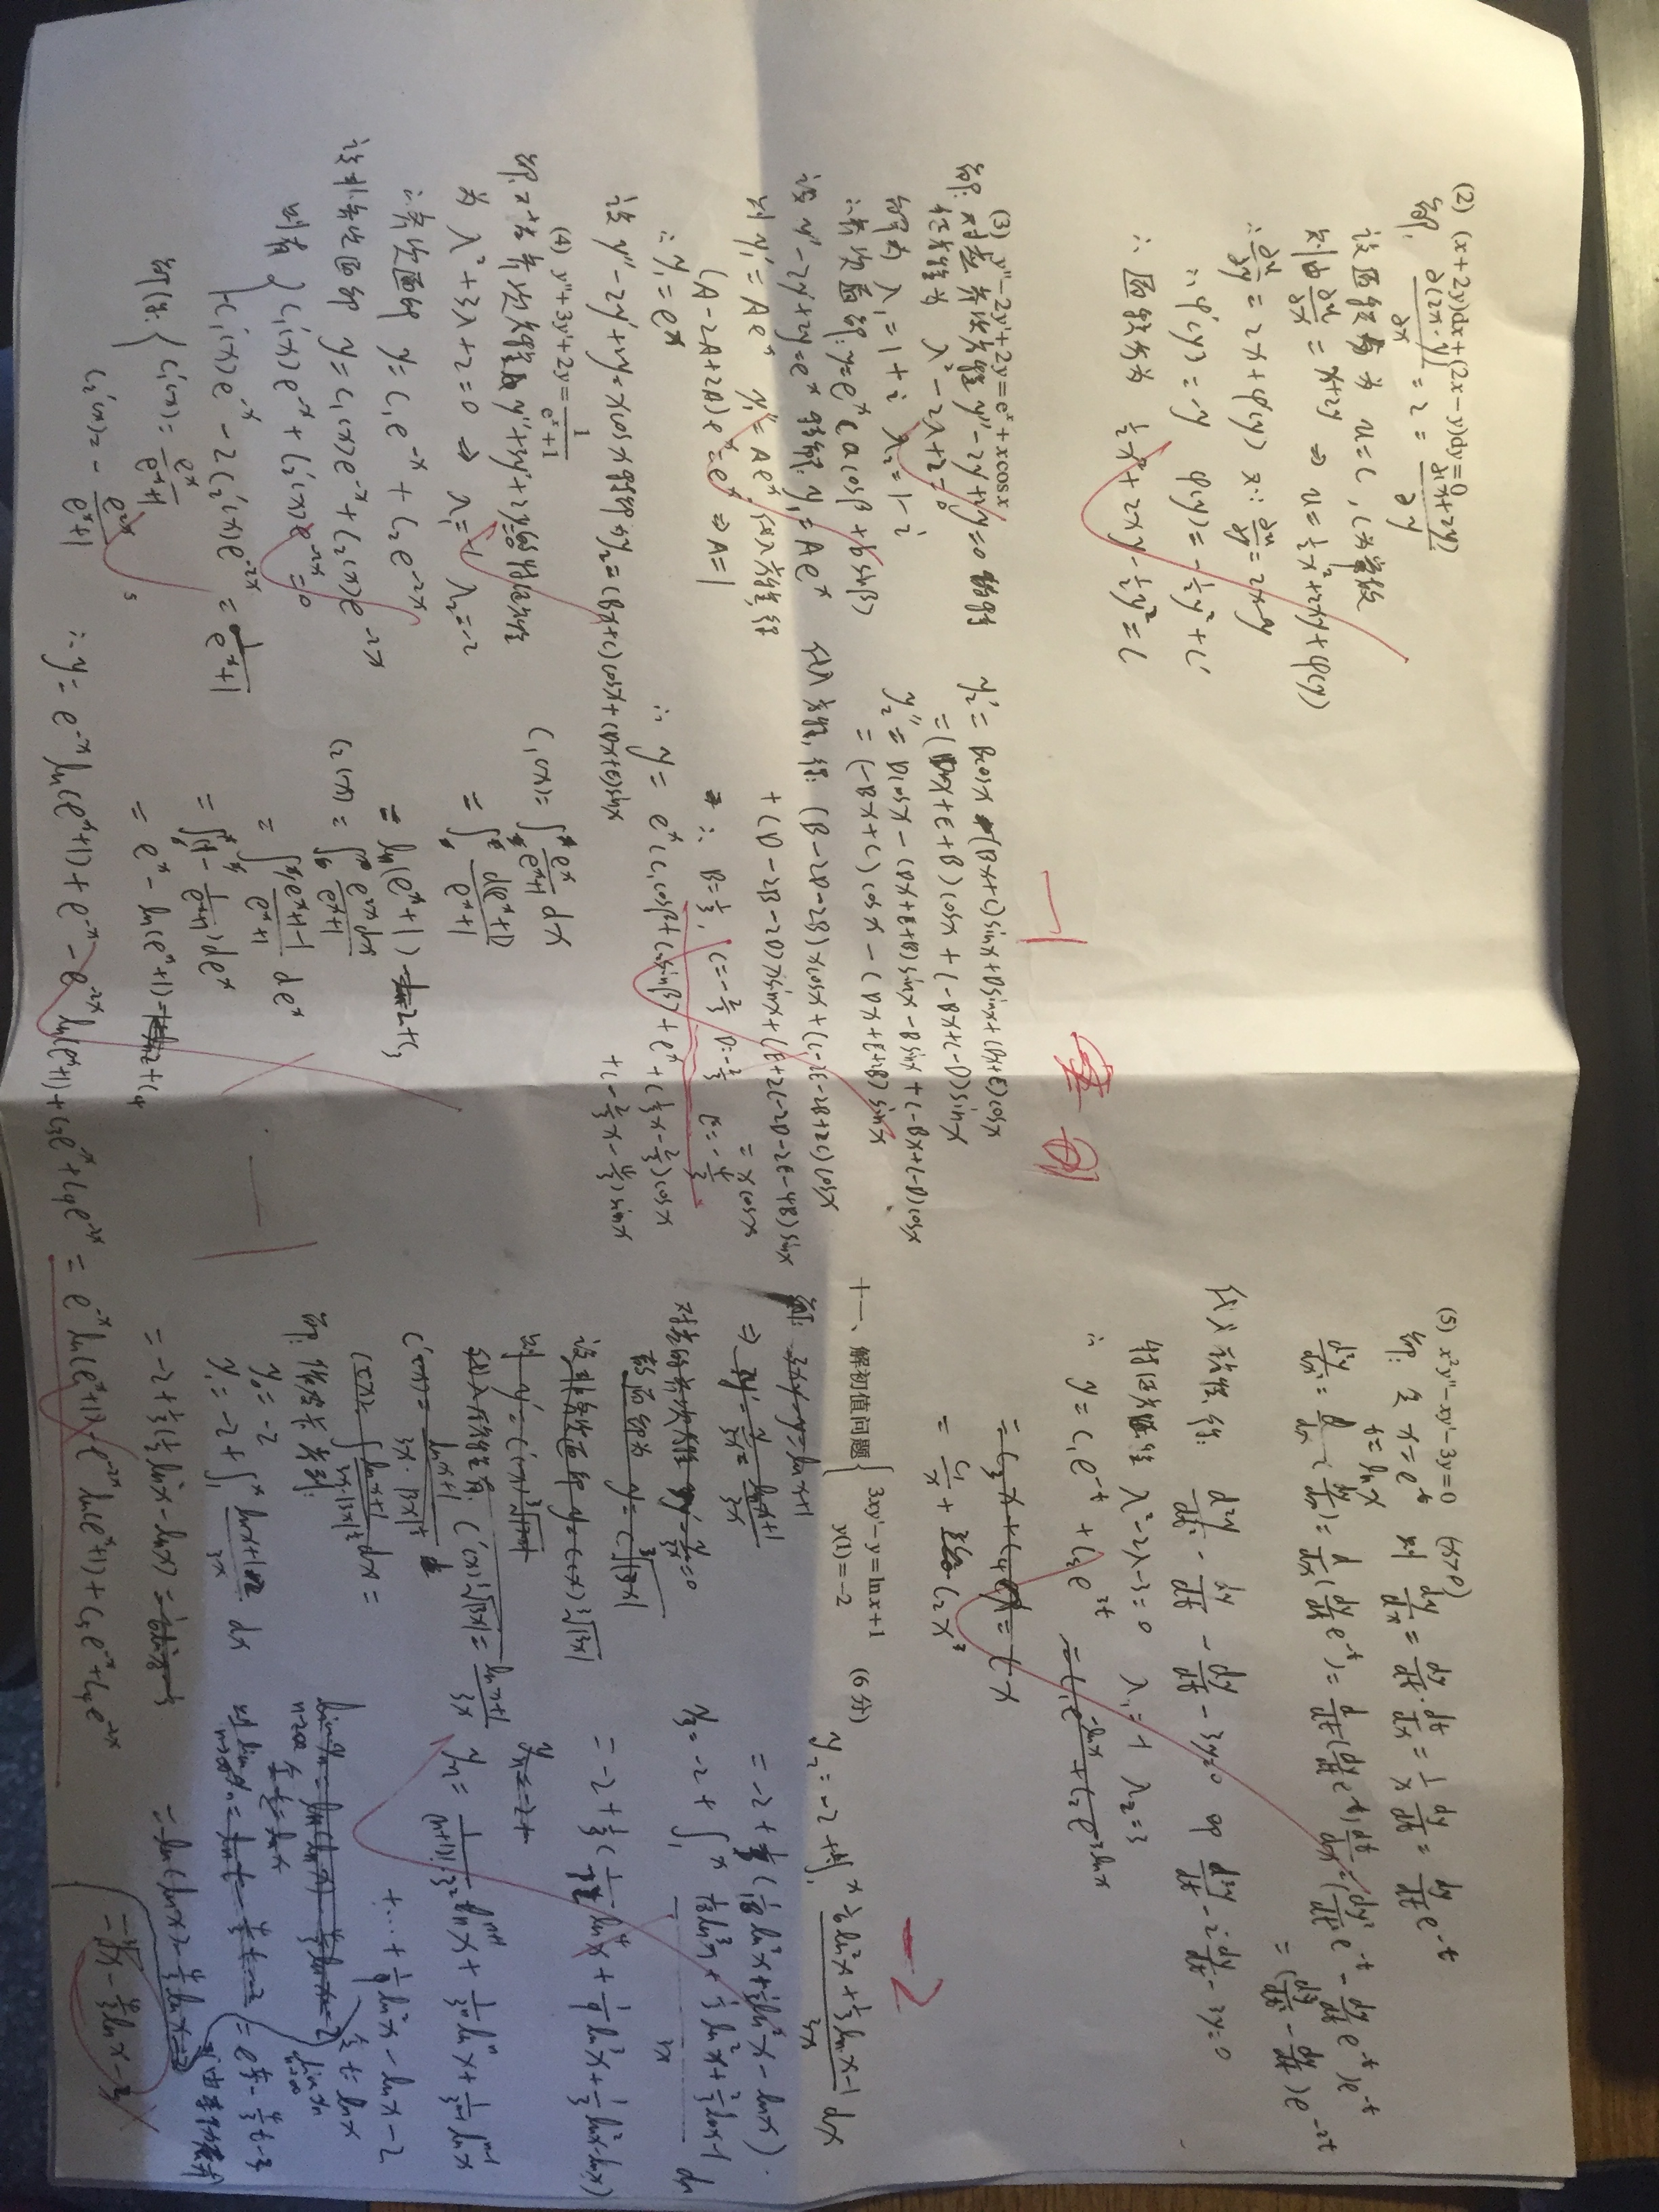 (2) (x+2y)dx+(2x−y)dy=0
解: ∂(2x-y)/∂x = 2 = ∂(x+2y)/∂y
设通积分为 u=C, C为常数
则由 ∂u/∂x = x+2y ⇒ u=½x²+2xy+φ(y)
∴ ∂u/∂y = 2x+φ'(y) 又∵ ∂u/∂y = 2x-y
∴ φ'(y) = -y φ(y) = -½y²+C'
∴ 通积分为 ½x²+2xy-½y²=C
-1
(3) y''−2y'+2y=eˣ+xcosx
解: 对应齐次方程 y''-2y'+2y=0 的特
征方程为 λ²-2λ+2=0
解为 λ₁=1+i λ₂=1-i
∴齐次通解: y=eˣ(acosβ+bsinβ)
设 y''-2y'+2y=eˣ 特解: y₁=Aeˣ
则 y₁'=Aeˣ y₁''=Aeˣ, 代入方程,得
(A-2A+2A)eˣ=eˣ ⇒ A=1
∴ y₁=eˣ
设 y''-2y'+2y=xcosx 特解为 y₂=(Bx+C)cosx+(Dx+E)sinx
y₂'= Bcosx-(Bx+C)sinx+Dsinx+(Dx+E)cosx
=(Dx+E+B)cosx+(-Bx+C-D)sinx
y₂''= Dcosx-(Dx+E+B)sinx-Bsinx+(-Bx+C-D)cosx
=(-Bx+C)cosx-(Dx+E+2B)sinx
代入方程, 得: (B-2D-2B)xcosx+(C-2E-2B+2C)cosx
+(D-2B-2D)xsinx+(E+2C-2D-2E-4B)sinx
=xcosx
∴ B=1/3, C=-2/3 D=-2/3 E=-4/3
∴ y= eˣ(C₁cosβ+C₂sinβ)+eˣ+(⅓x-⅔)cosx
+(-⅔x-4/3)sinx
(4) y''+3y'+2y=1/(eˣ+1)
解: 对应齐次方程 y''+3y'+2y=0的特征方程
为 λ²+3λ+2=0 ⇒ λ₁=-1 λ₂=-2
∴齐次通解 y=C₁e⁻ˣ+C₂e⁻²ˣ
设非齐次通解 y=C₁(x)e⁻ˣ+C₂(x)e⁻²ˣ
则有 { C₁'(x)e⁻ˣ+C₂'(x)e⁻²ˣ=0
-C₁'(x)e⁻ˣ-2C₂'(x)e⁻²ˣ=1/(eˣ+1)
解得: { C₁'(x)=eˣ/(eˣ+1)
C₂'(x)=-e²ˣ/(eˣ+1)
C₁(x)=∫eˣ/(eˣ+1) dx
=∫d(eˣ+1)/(eˣ+1)
= ln(eˣ+1)+C₃
C₂(x)=∫e²ˣdx/(eˣ+1)
=∫(eˣ+1-1)/(eˣ+1) deˣ
=∫(1-1/(eˣ+1))deˣ
= eˣ-ln(eˣ+1)+C₄
-1
∴ y= e⁻ˣln(eˣ+1)+e⁻ˣ-e⁻²ˣln(eˣ+1)+C₃e⁻ˣ+C₄e⁻²ˣ = e⁻ˣln(eˣ+1)-e⁻²ˣln(eˣ+1)+C₅e⁻ˣ+C₄e⁻²ˣ
(5) x²y''−xy'−3y=0 (x>0)
解: 令 x=e^t 则 dy/dx = dy/dt·dt/dx = 1/x dy/dt = dy/dt e^-t
t=lnx
d²y/dx² = d/dx(dy/dx) = d/dx(dy/dt e^-t) = d/dt(dy/dt e^-t)dt/dx = (dy²/dt² e^-t - dy/dt e^-t)e^-t
=(d²y/dt² - dy/dt)e^-2t
代入方程, 得: d²y/dt² - dy/dt - dy/dt - 3y=0 即 d²y/dt² - 2dy/dt - 3y=0
特征方程 λ²-2λ-3=0 λ₁=-1 λ₂=3
∴ y=C₁e^-t+C₂e^3t =C₁e^-lnx+C₂e^3lnx
= C₃x+C₄
= C₁/x + C₂x³
-2
十一、解初值问题 { 3xy'−y=lnx+1
y(1)=−2 (6分)
解: 3xy'-y=lnx+1
⇒ y'-y/3x=(lnx+1)/3x
对应的齐次方程 y'-y/3x=0
的通解为 y=C∛|3x|
设非齐次通解 y=C(x)∛|3x|
则 y'=C'(x)∛|3x|
代入原方程有, C'(x)∛|3x|=(lnx+1)/3x
C'(x)=(lnx+1)/(3x·|3x|^⅓)
C(x)=∫(lnx+1)/(3x·|3x|^⅓)dx=
解: 作皮卡序列:
y₀=-2
y₁=-2+∫₁ˣ(lnx+1-2)/3x dx
=-2+⅓(½ln²x-lnx)
y₂=-2+∫₁ˣ(⅙ln²x+⅔lnx-1)/3x dx
=-2+⅓(1/18 ln³x+⅓ln²x-lnx)
y₃=-2+∫₁ˣ(1/18 ln³x+⅓ln²x+⅔lnx-1)/3x dx
=-2+⅓(1/72 ln⁴x+1/9 ln³x+⅓ln²x-lnx)
yₙ=-2+
+⋯+1/9 ln²x-lnx-2
令 t=lnx
lim yₙ
n→∞
=e^(t/3)-4/3 t-3
=ln(lnx)-4/3 lnx-2
=∛x-4/3 lnx-3